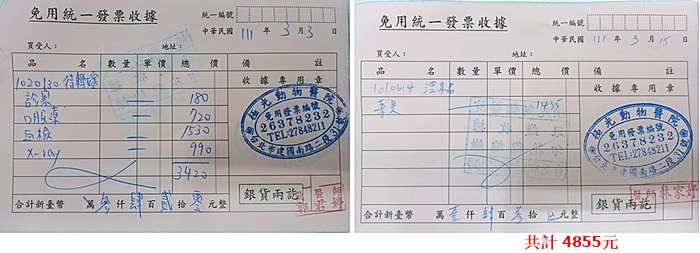 免用統一發票收據
統一編號
中華民國 111 年 3 月 3 日
買受人： 地址：
品名 數量 單價 總價 備註
收據專用章
1020130
診察 180
720
血檢 1530
X-ray 990
3420
極光動物醫院
免用發票編號
26378232
TEL:27848211
台北市建國南路二段31號
銀貨兩訖
醫師
郭君婷
合計新臺幣 萬 參 仟 肆 百 貳 拾 零 元整
免用統一發票收據
統一編號
中華民國 111 年 3 月 15 日
買受人： 地址：
品名 數量 單價 總價 備註
收據專用章
1010614
1435
極光動物醫院
免用發票編號
26378232
TEL:27848211
台北市建國南路二段31號
銀貨兩訖
醫師林家婷
合計新臺幣 萬 壹 仟 肆 百 參 拾 元整
共計 4855元